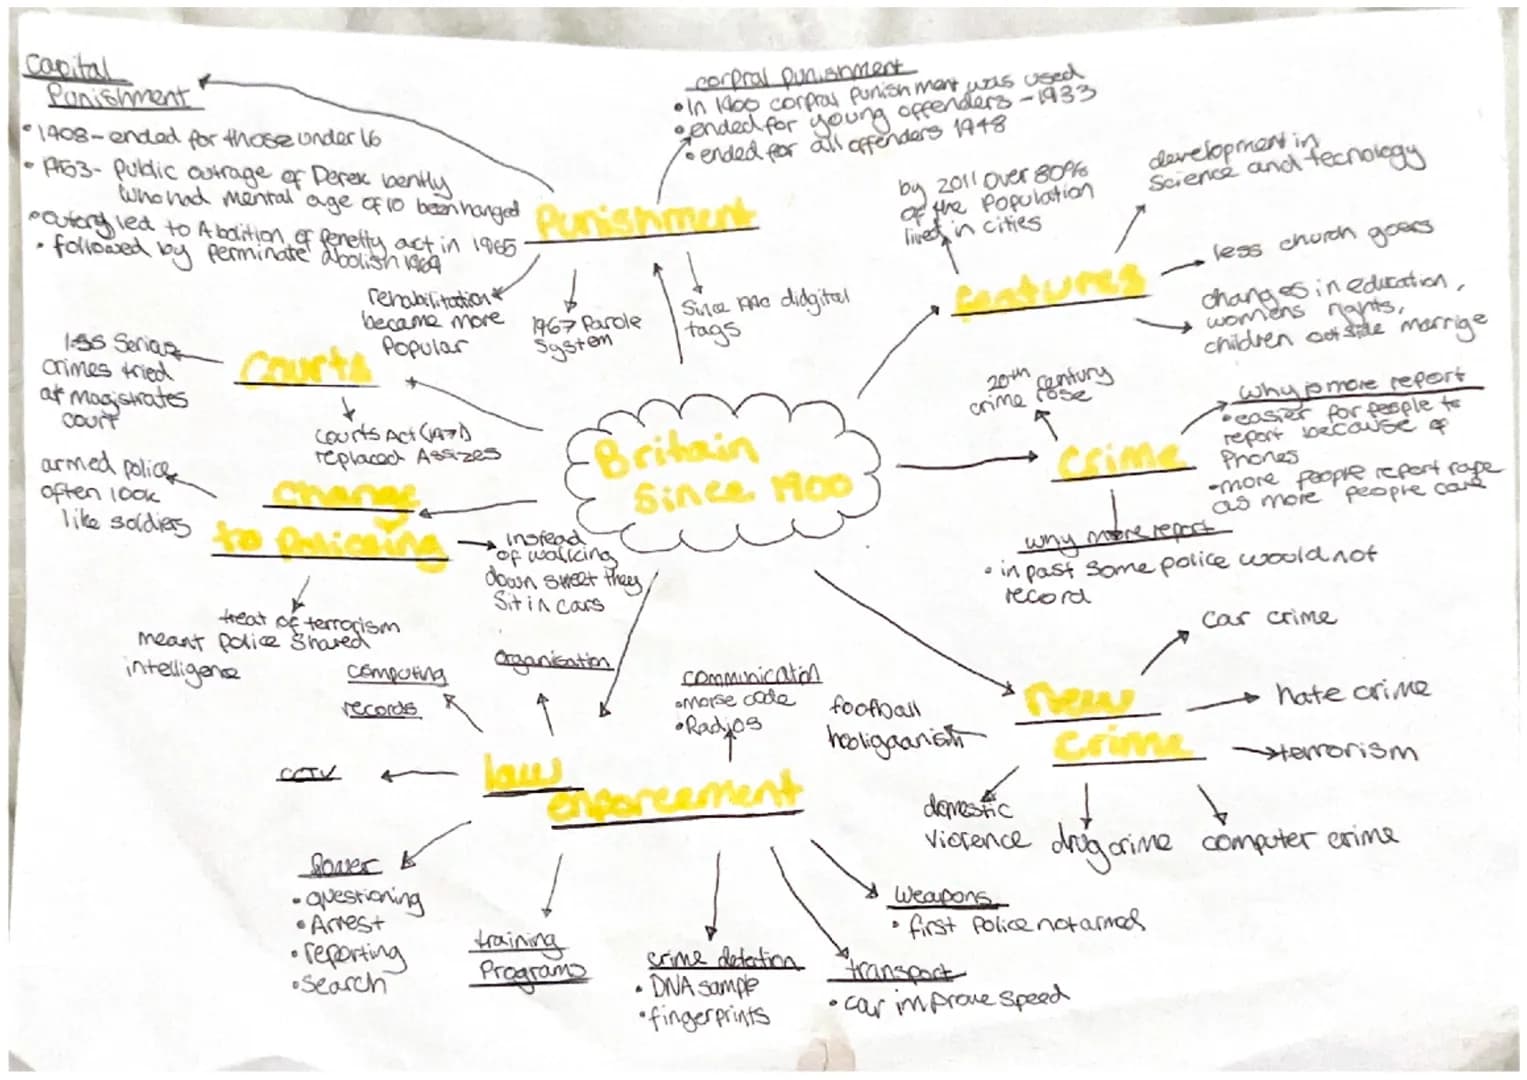 Capital
Punishment
• 1908 - ended for those under 16
• 1953 - Public outrage of Derek bently
who had mental age of 10 been hanged
• outcry led to Abolition of Penelty act in 1965
• followed by perminate abolish 1969
corpral punishment
• In 1900 corpral punishment was used
• ended for young offenders - 1933
• ended for all offenders 1948
Punishment
rehabilitation
became more
Popular
1967 Parole
System
Since 1990 didgital
tags
by 2011 over 80%
of the population
lived in cities
development in
science and tecnology
less church goers
changes in education,
womens rights,
children outside marrige
Features
Courts
less Serious
crimes tried
at magistrates
court
Courts Act (1971)
replaced Assizes
Britain
Since 1900
20th century
crime rose
Crime
why more report
• easier for people to
report because of
Phones
• more people report rape
as more people care
why more report
• in past some police would not
record
Change
to policing
armed police
often look
like soldiers
instead
of walking
down street they
Sit in cars
treat of terrorism
meant police shared
intelligence
New
Crime
car crime
hate crime
terrorism
computer crime
drug crime
domestic
violence
football
hooligaanism
law
enforcement
computing
records
organisation
communication
• morse code
• Radios
CCTV
Power
• questioning
• Arrest
• reporting
• search
training
Programs
crime detection
• DNA sample
• fingerprints
transport
• car improve speed
Weapons
• first police not armed